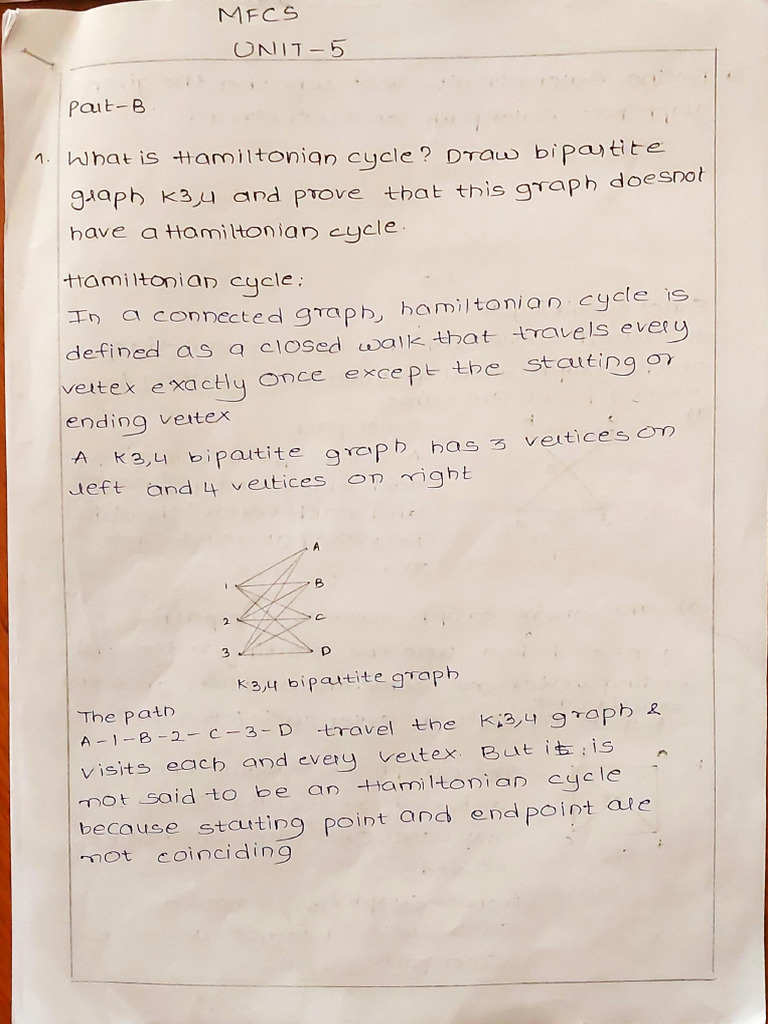 MFCS
UNIT-5
Part-B
1. What is Hamiltonian cycle? Draw bipartite
graph K3,4 and prove that this graph doesnot
have a Hamiltonian cycle.
Hamiltonian cycle:
In a connected graph, hamiltonian cycle is
defined as a closed walk that travels every
vertex exactly once except the starting or
ending vertex
A K3,4 bipartite graph has 3 vertices on
left and 4 vertices on right
A
1 B
2 C
3 D
K3,4 bipartite graph
The path
A-1-B-2-C-3-D travel the K3,4 graph &
visits each and every vertex. But it is
not said to be an Hamiltonian cycle
because starting point and endpoint are
not coinciding